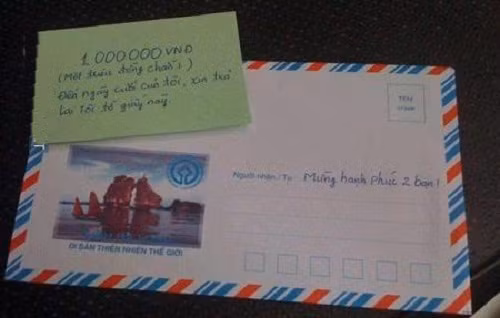 1.000.000 VNĐ
(Một triệu đồng chẵn!)
Đến ngày cưới của tôi, xin trả
lại tôi tờ giấy này
TEM
Người nhận/To: Mừng hạnh phúc 2 bạn!
DI SẢN THIÊN NHIÊN THẾ GIỚI